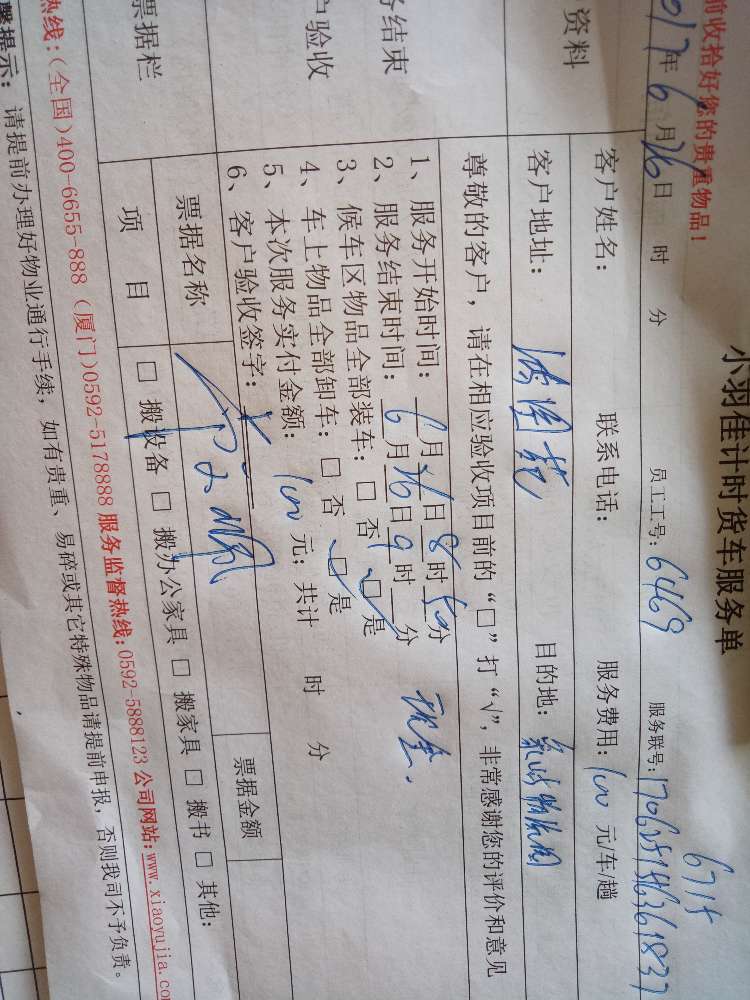 小羽佳计时货车服务单
前收拾好您的贵重物品！
6715
017年6月26日 时 分 员工工号：6469 服务联号：
资料
客户姓名： 联系电话： 服务费用：100元/车/趟
客户地址： 目的地：
务结束
户验收
尊敬的客户，请在相应验收项目前的“□”打“√”，非常感谢您的评价和意见
1、服务开始时间：6月26日8时50分
2、服务结束时间：6月26日9时 分 现金.
3、候车区物品全部装车：□否 □是
4、车上物品全部卸车：□否 □是
5、本次服务实付金额：100元；共计 时 分
6、客户验收签字：
票据栏
票据名称 票据金额
项目 □搬设备 □搬办公家具 □搬家具 □搬书 □其他：
热线：(全国)400-6655-888 (厦门)0592-5178888 服务监督热线：0592-5888123 公司网站：www.xiaoyujia.co
馨提示：请提前办理好物业通行手续，如有贵重、易碎或其它特殊物品请提前申报，否则我司不予负责。